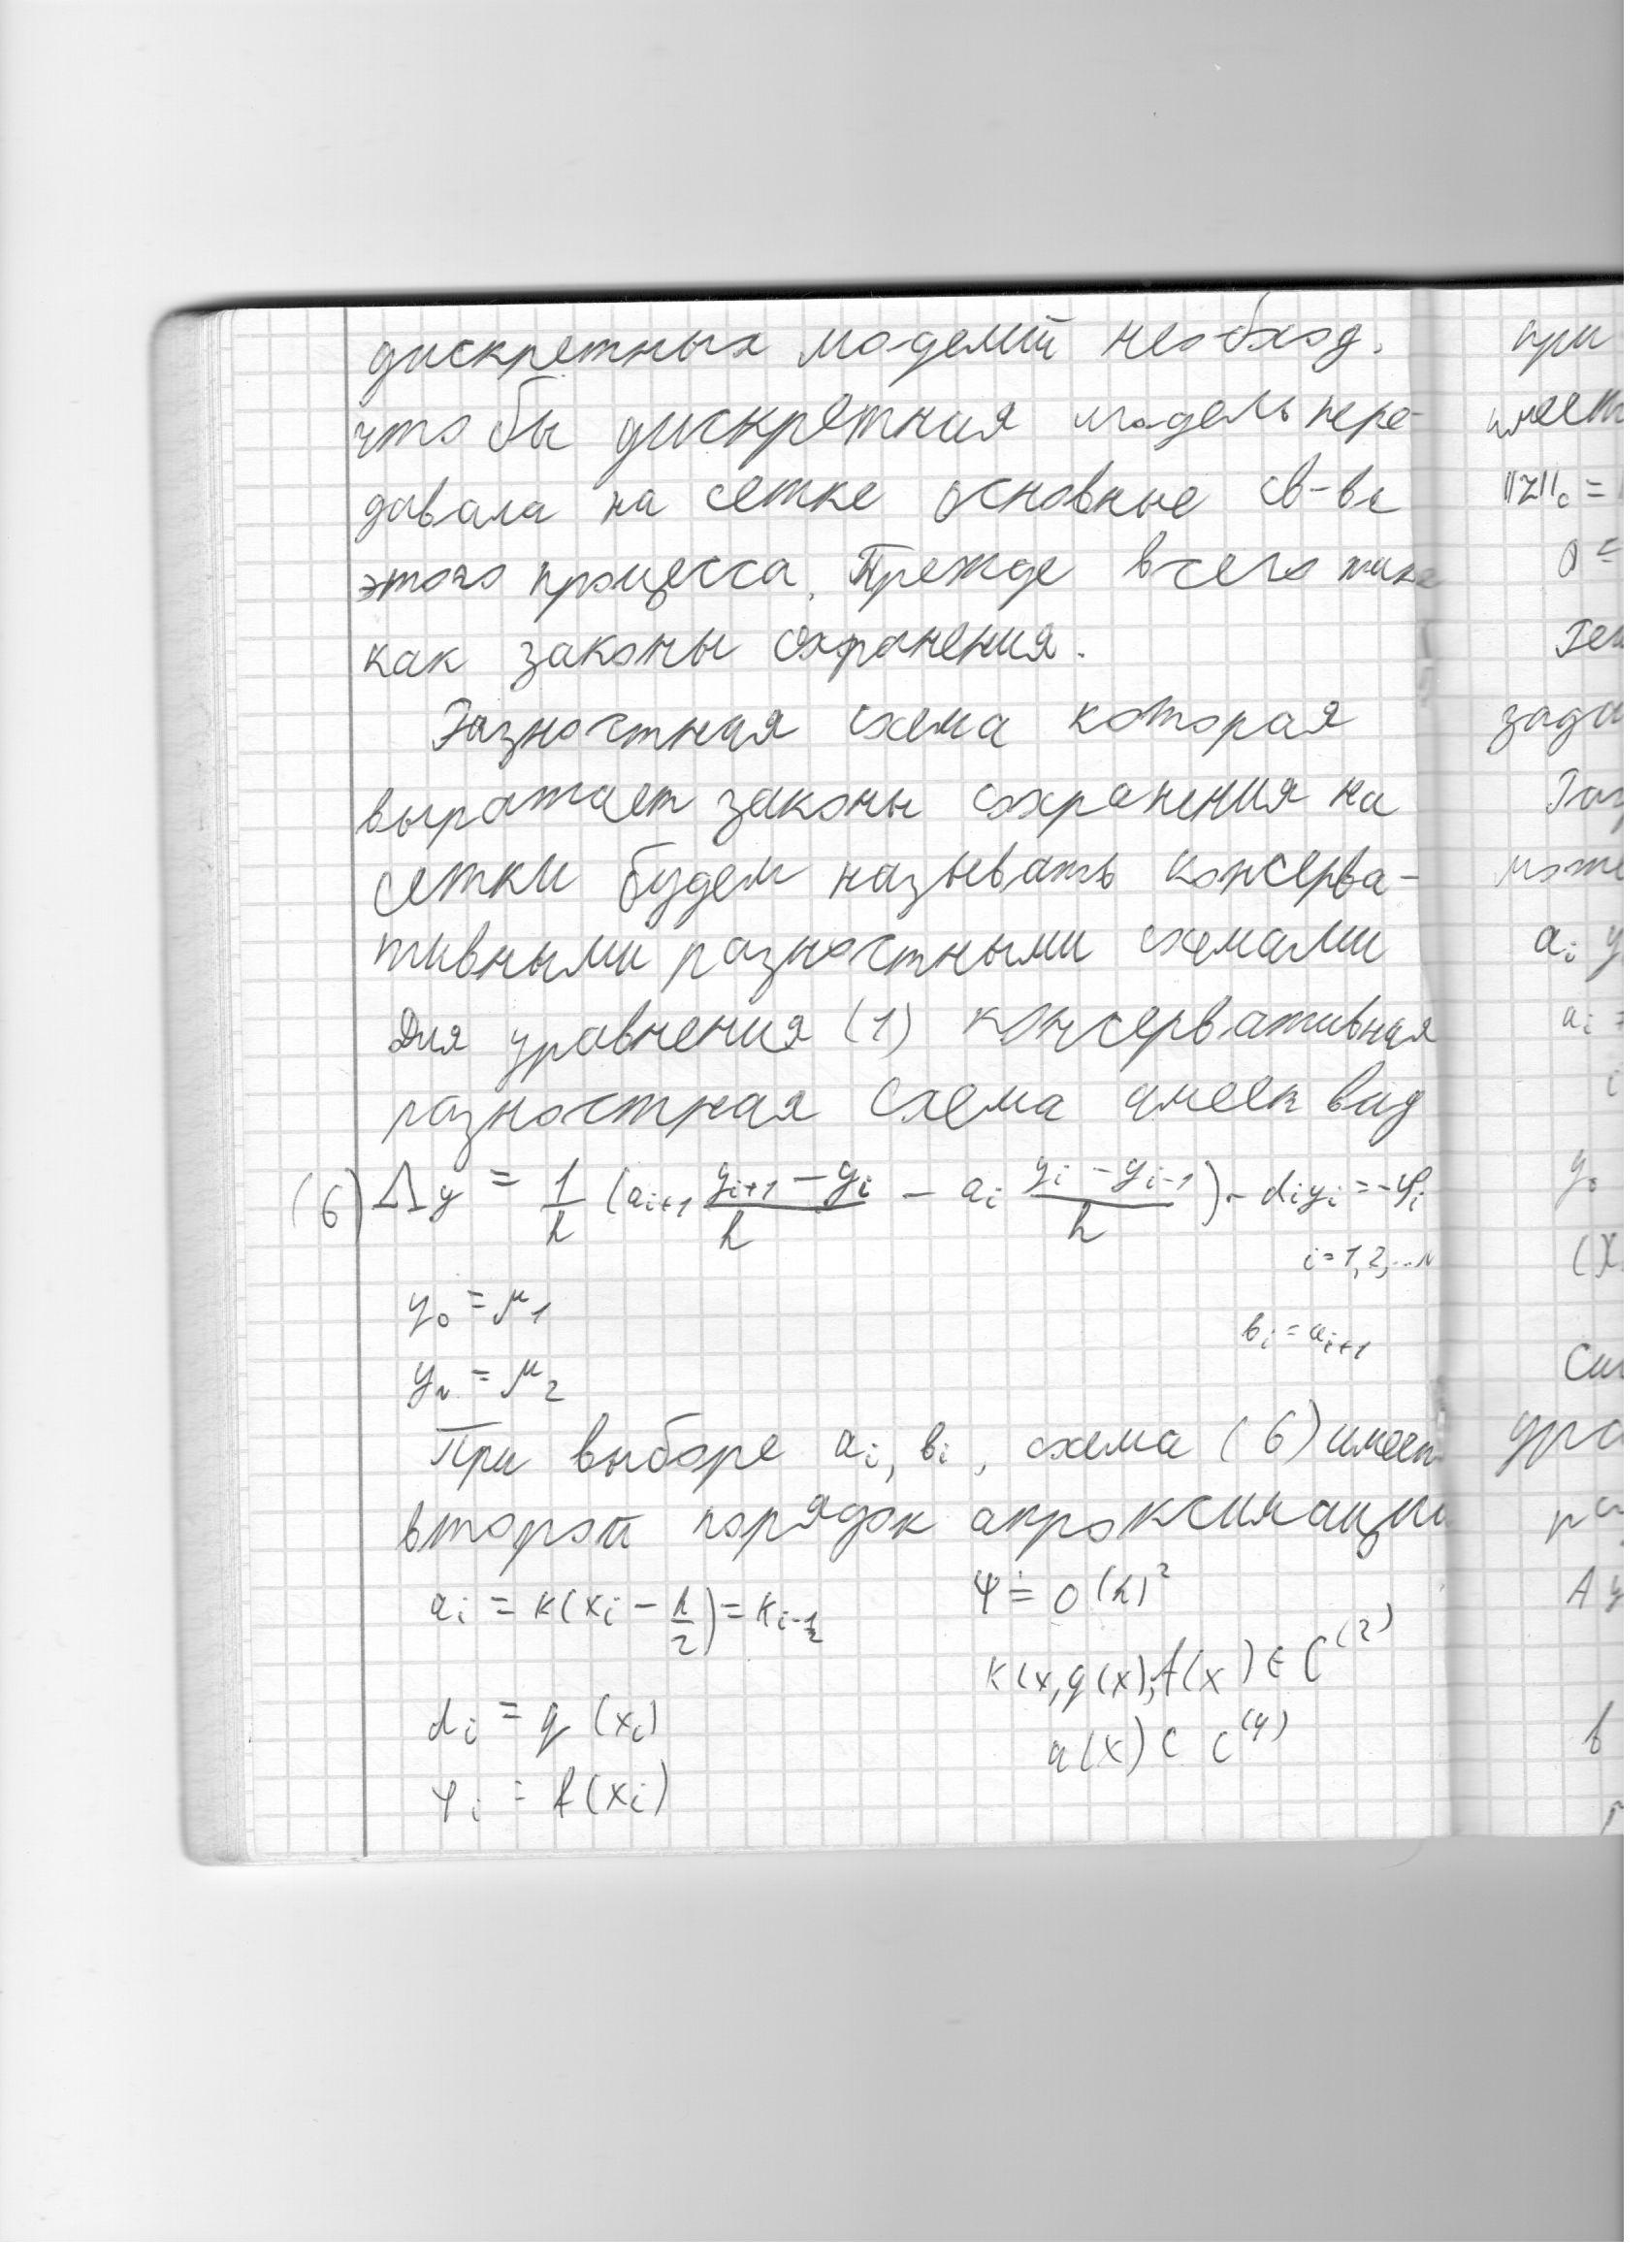 дискретных моделий необход.
что бы дискретная модель пере-
давала на сетке основные св-ва
этого процесса. Прежде всего такие
как законы сохранения.
Разностная схема которая
выражает законы сохранения на
сетки будем называть консерва-
тивными разностными схемами
Для уравнения (1) консервативная
разностная схема имеет вид
(6) Λy = 1/h (a_{i+1} (y_{i+1} - y_i)/h - a_i (y_i - y_{i-1})/h) - d_i y_i = -φ_i
i = 1, 2, ... N
y_0 = μ_1
b_i = a_{i+1}
y_N = μ_2
При выборе a_i, b_i, схема (6) имеет
второй порядок апроксимации
a_i = k(x_i - h/2) = k_{i-1/2}
ψ = O(h)^2
k(x, q(x), f(x) ∈ C^(2)
d_i = q(x_i)
u(x) ⊂ C^(4)
φ_i = f(x_i)
при
имеет
||z||_c =
0 =
зада
a_i y
a_i =
i
y_0
A y
в